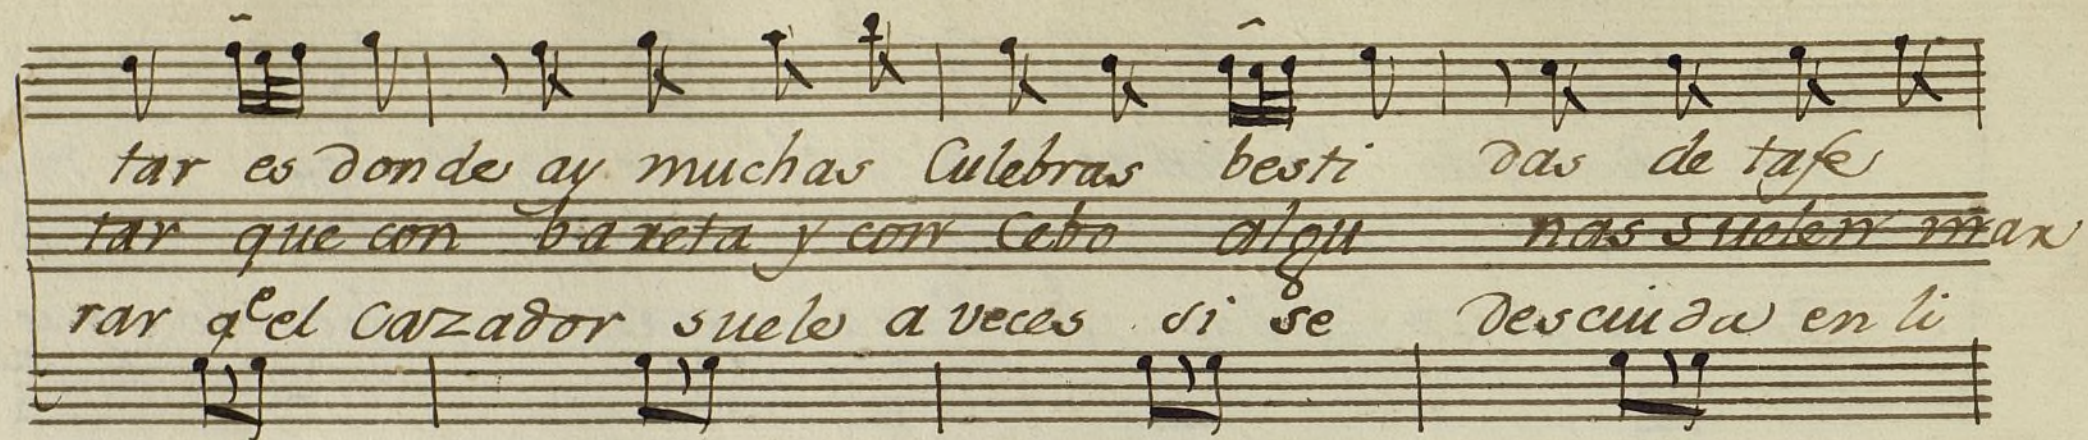 tar es donde ay muchas Culebras besti das de tafe
tar que con baxeta y con Cebo algu nas suelen max
rar qe el Cazador suele a veces si se descuida en li